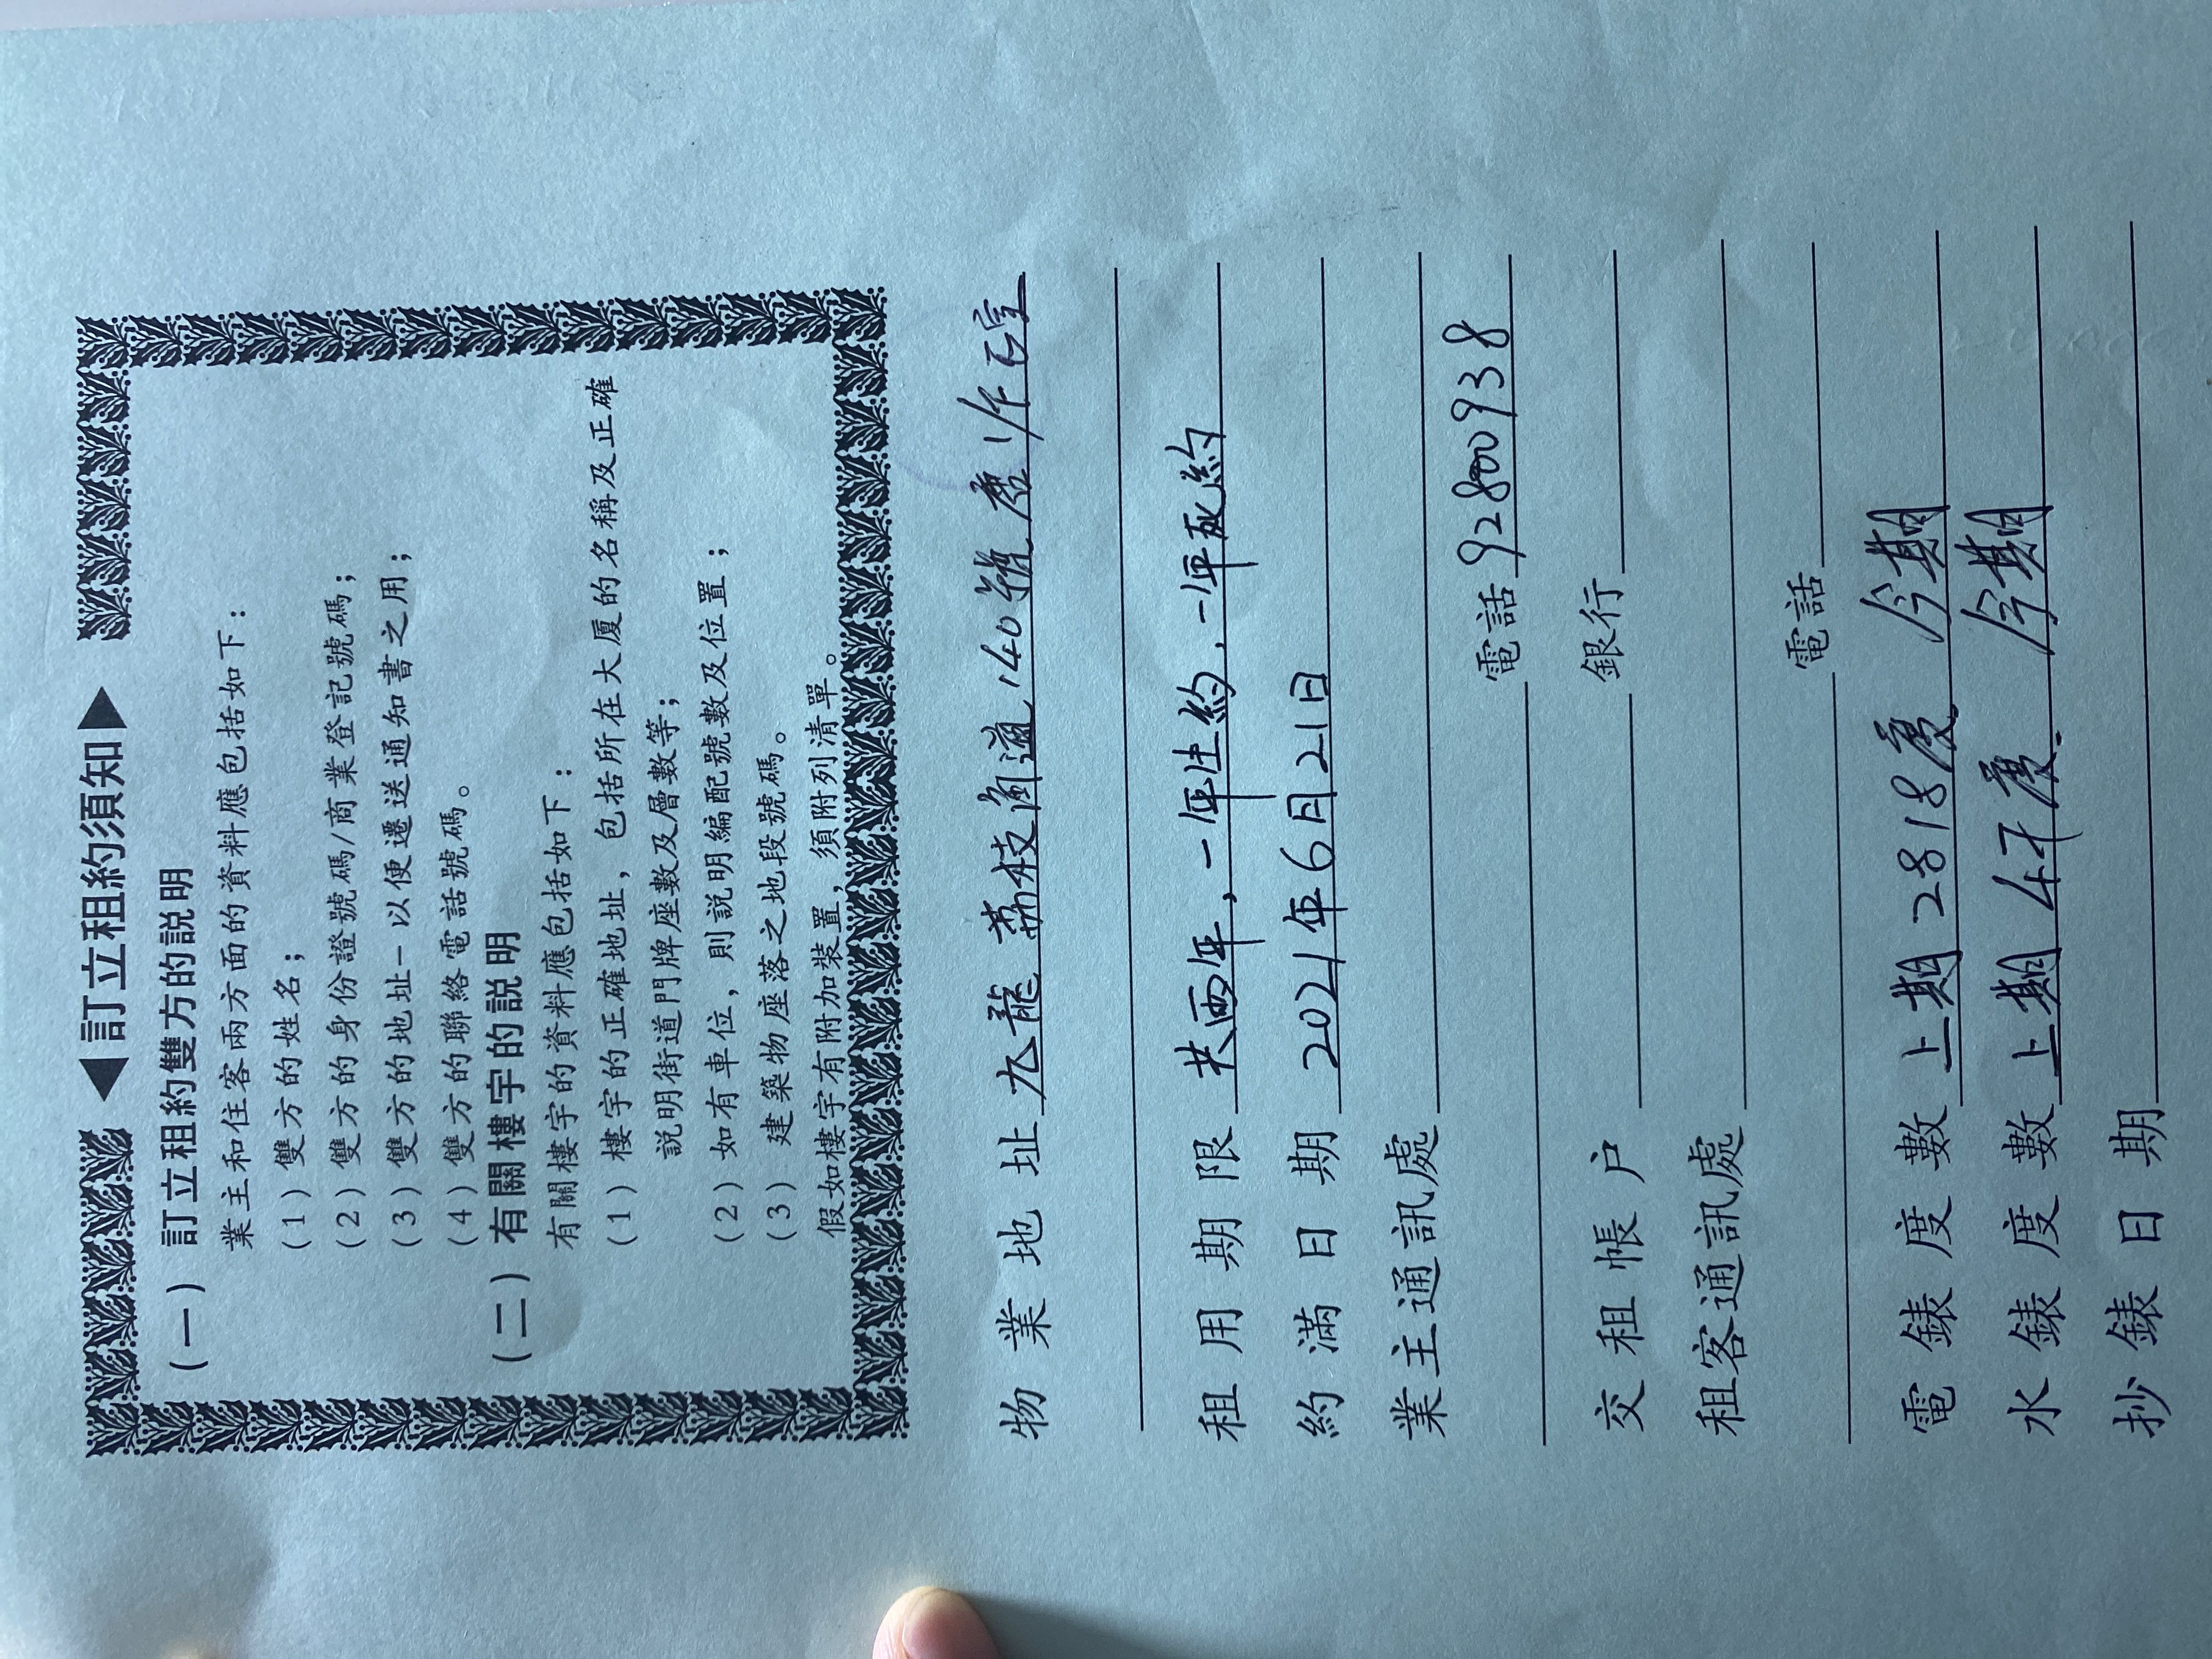 ◀訂立租約須知▶
(一) 訂立租約雙方的説明
業主和住客兩方面的資料應包括如下：
(1) 雙方的姓名；
(2) 雙方的身份證號碼/商業登記號碼；
(3) 雙方的地址－以便遷送通知書之用；
(4) 雙方的聯絡電話號碼。
(二) 有關樓宇的説明
有關樓宇的資料應包括如下：
(1) 樓宇的正確地址，包括所在大厦的名稱及正確
説明街道門牌座數及層數等；
(2) 如有車位，則説明編配號數及位置；
(3) 建築物座落之地段號碼。
假如樓宇有附加裝置，須附列清單。
物業地址 九龍荔枝角道140號
租用期限 共両年，一年生約，一年死約
約滿日期 2021年6月21日
業主通訊處
電話 92800938
交租帳户 銀行
租客通訊處
電話
電錶度數 上期2818度 今期
水錶度數 上期47度 今期
抄錶日期